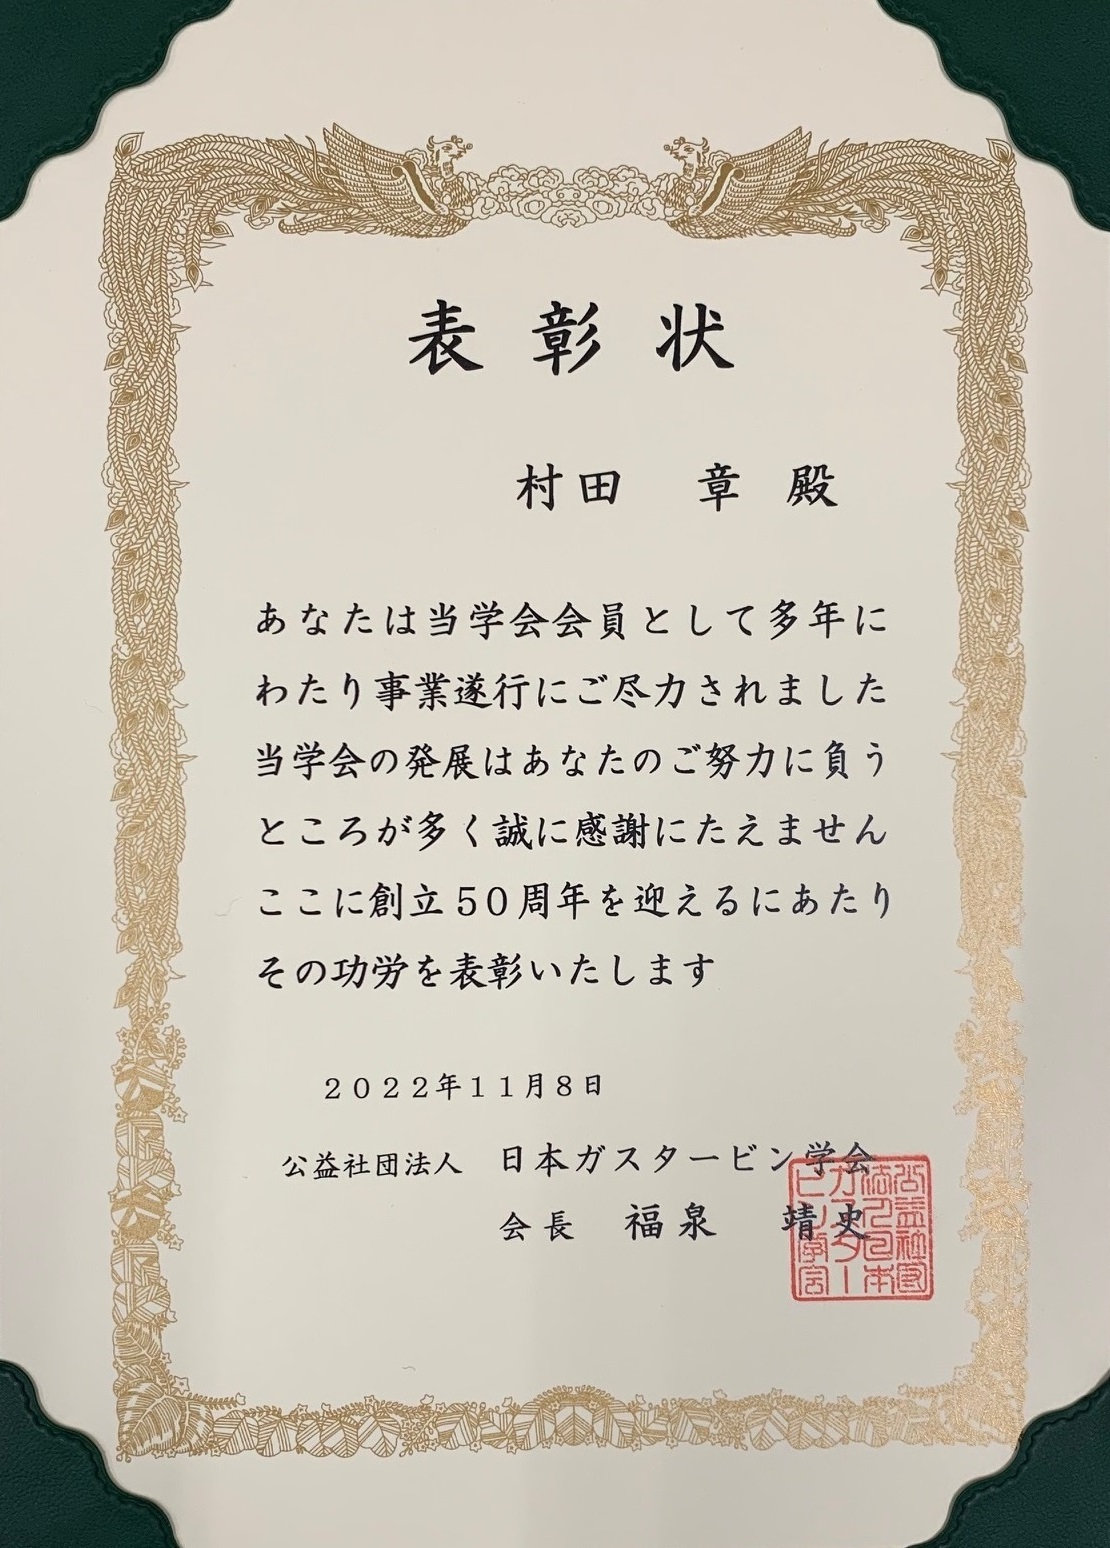 表彰状
村田　章 殿
あなたは当学会会員として多年に
わたり事業遂行にご尽力されました
当学会の発展はあなたのご努力に負う
ところが多く誠に感謝にたえません
ここに創立50周年を迎えるにあたり
その功労を表彰いたします
２０２２年１１月８日
公益社団法人　日本ガスタービン学会
会長　福泉　靖史
公益社団
法人日本
ガスター
ビン学会